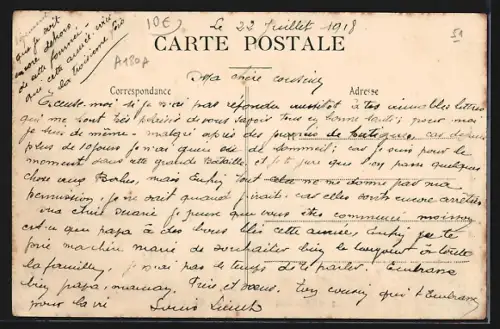 Le 22 Juillet 1918
10€
51
A180A
CARTE POSTALE
Ma chère cousine
Correspondance
Adresse
Excuse moi si je n'ai pas répondu aussitot à tes aimables lettres
qui me font très plaisir de vous savoir tous en bonne santé; pour moi
je suis de même malgré après des de fatigue, car depuis
plus de 10 jours je n'ai de sommeil; car je suis pour le
moment dans cette grande Bataille, et je te jure que l'on passe quelque
chose aux Boches, mais Enfin tout cela ne me donne pas ma
permission, je ne sait quand j'irait, car elles sont encore arrêtées
ma chère Marie je pense que vous êtes commencé moissonner
est-ce que papa à des bons blés cette année, Enfin je te
prie ma chère marie de souhaiter bien le bonjour à toute
la famille, je n'ai pas le temps de te parler. Embrasse
bien papa, maman, et sœurs. Ton cousin qui t'Embrasse
pour la vie Louis
que je soit
encore dehors
de cette
que cette année ici
la troisième fois